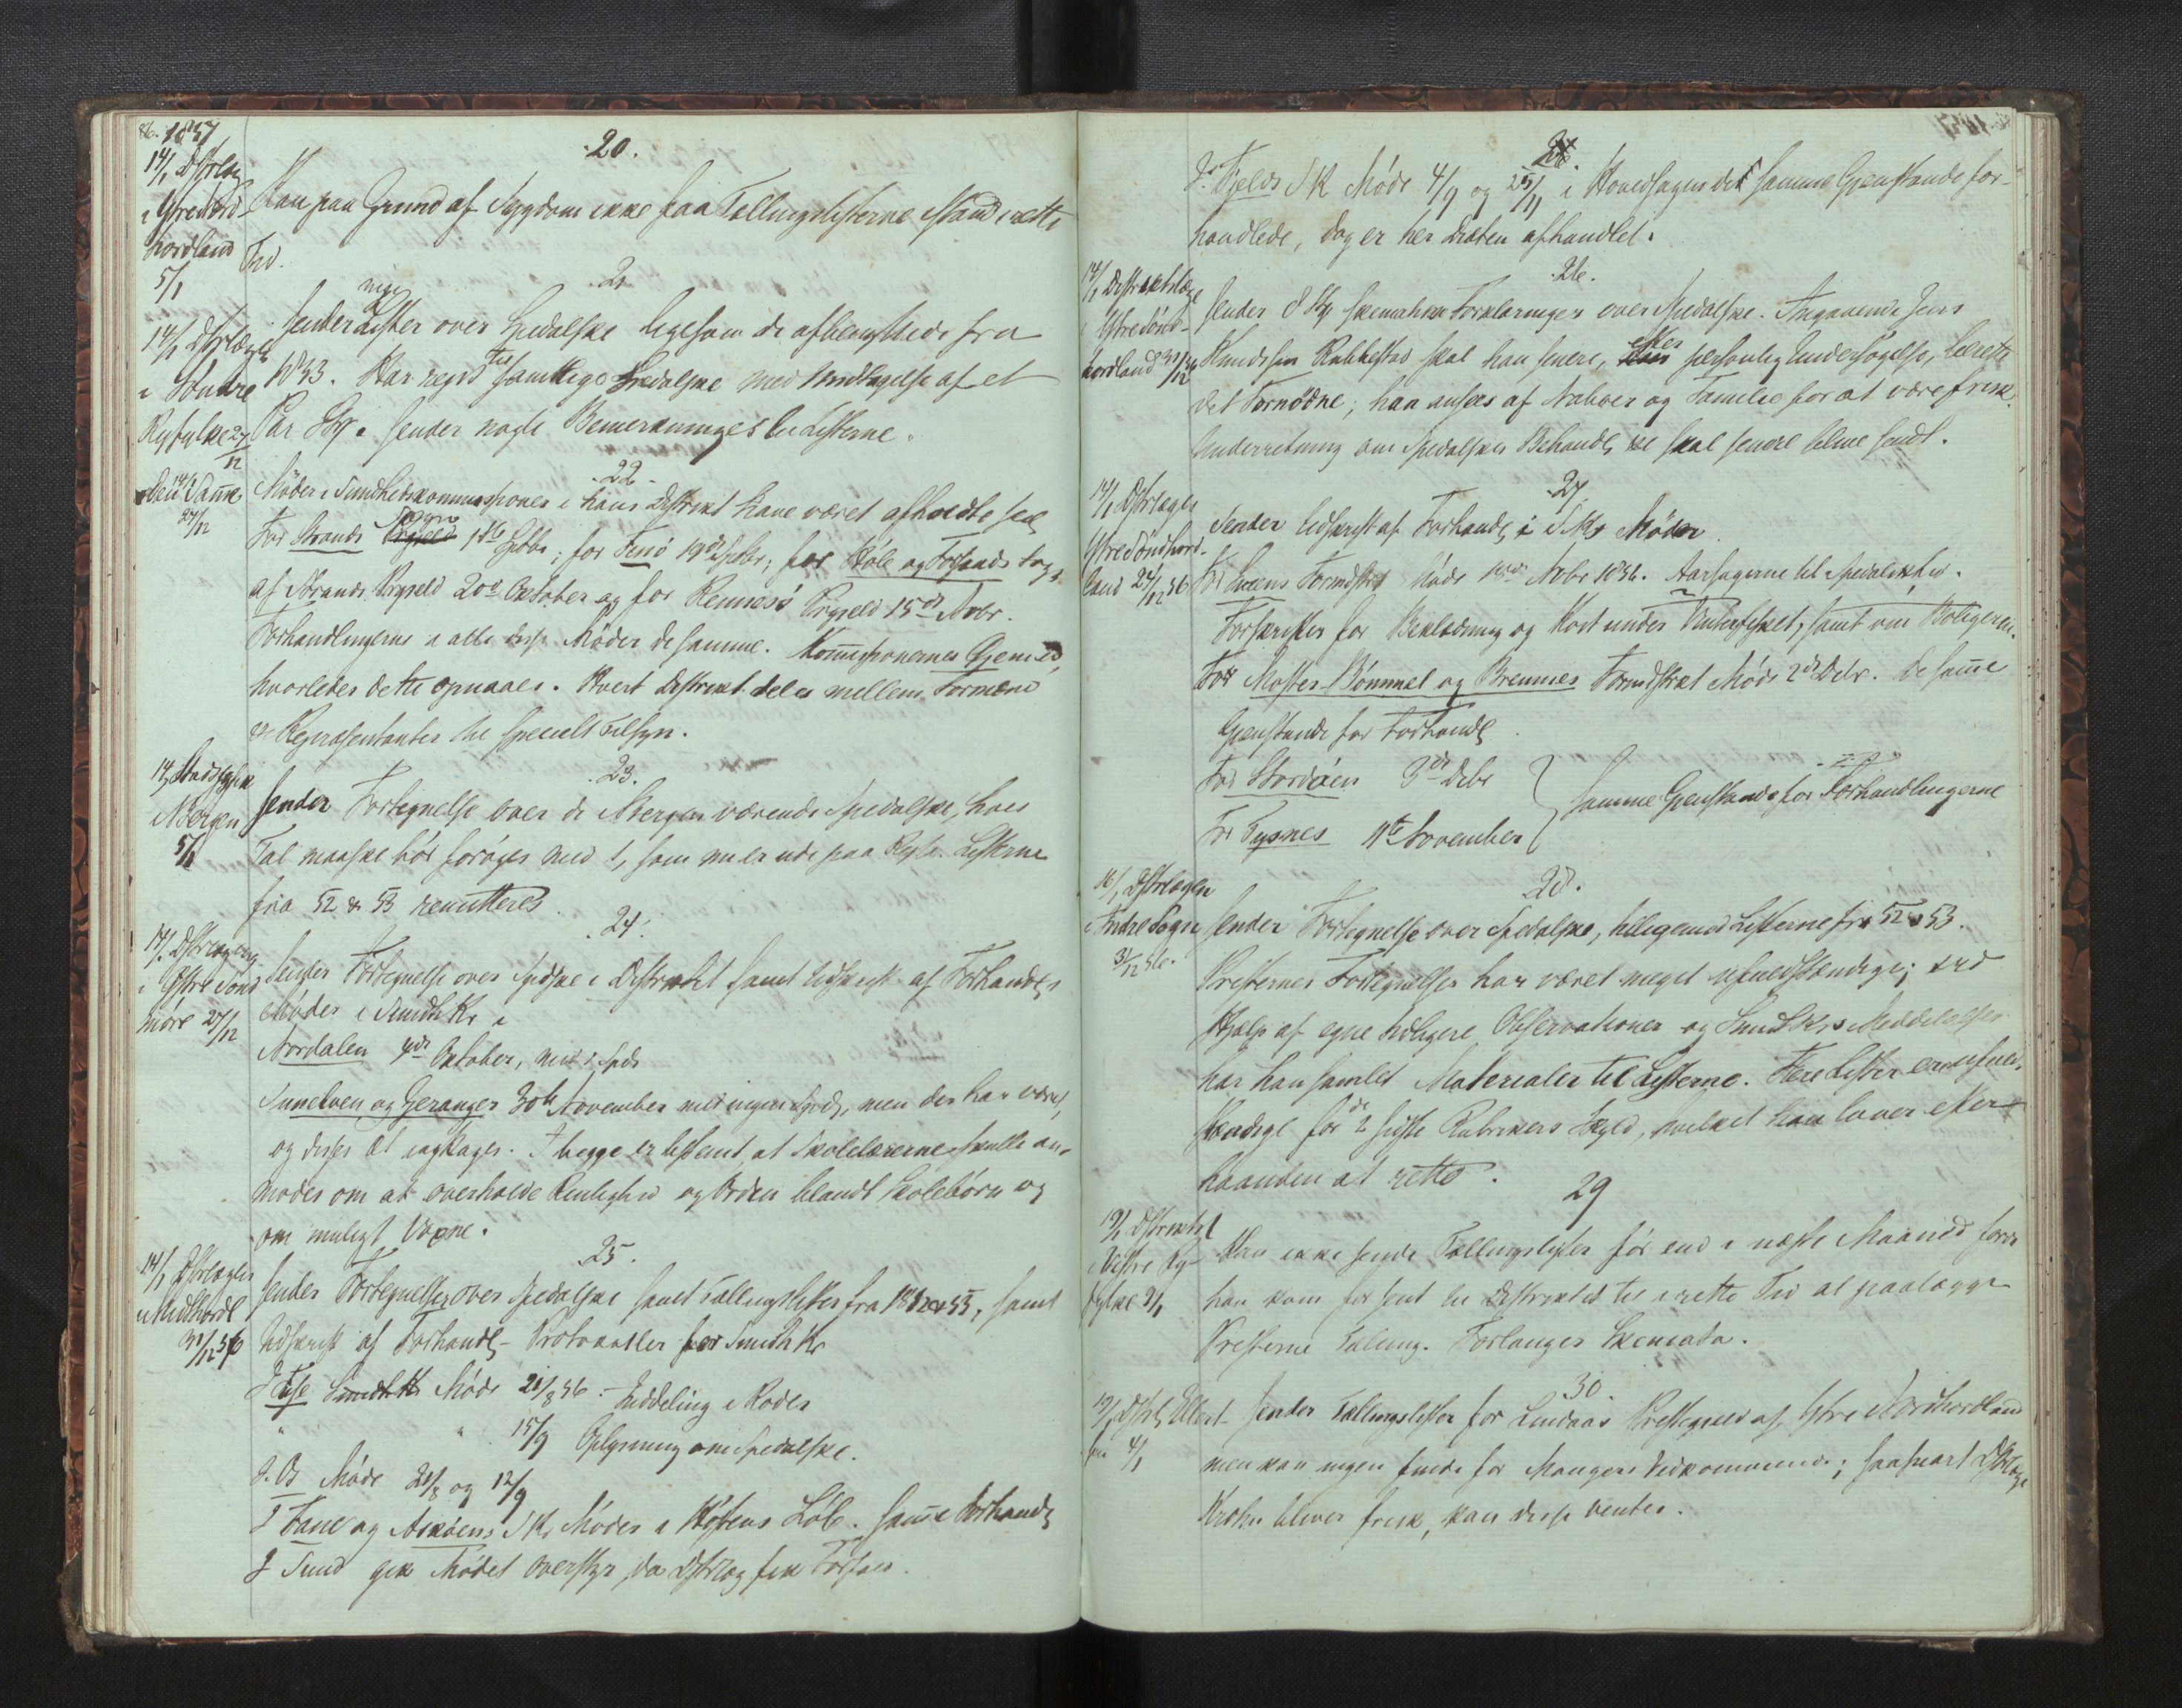 86. 1857
.20.
14/1 Dstrlæg
i Yttre Nord-
hordland
5/1
Kan paa Grund af Sygdom ikke faa Tællingslisterne istand i rette
Tid.
.21.
14/1 Dstrlæge
i Søndre
Ryfylke 27/12
Sender nye Lister over Spedalske ligesom de afbenyttede fra
1853. Har reist til samtlige Spedalske med Undtagelse af et
Par Stk. Sender nogle Bemerkninger til Listerne.
.22.
14/1 
27/12
Møder i Sundhedskommissioner i hans Distrikt have været afholdte
For Strands Sogn 1ste Septbr; for Finnø 19de Septbr; for Høle og Forsands Sogn
af Strands Prgjeld 20de October og for Rennesø Prgjeld 15de Novbr.
Forhandlingerne i alle disse Møder de samme. Kommissionernes Gjemed,
hvorledes dette opnaaes. Hvert Distrikt deles mellem Formænd
og Repræsentanter til specielt Tilsyn.
.23.
14/1 Stadsfysik
i Bergen
5/1
Sender Fortegnelse over de i Bergen værende Spedalske, hvis
Tal maaske bør forøges med 1, som nu er ude paa Reise. Listerne
fra 52 & 53 remitteres.
.24.
14/1 Dstrlægen
i Østre Sønd
møre 27/12
Sender Fortegnelse over Spedske i Distriktet samt Udskrift af Forhandl.
Møder i SundhKr i
Nordalen 4de October, med 1 Spds
Sunelven og Geranger 30te November med ingen Spds, men der har været,
og disses Æt iagttages. I begge er bestemt at Skolelærerne skulle an-
modes om at overholde Renlighed og Orden blandt Skolebørn og
om muligt Voxne.
.25.
14/1 Dstrlægen
i Midhordl
31/12 56
Sender Fortegnelse over Spedalske samt Tællingslister fra 1852 & 53, samt
Udskrift af Forhandl- Protocoller for SundhKr
I Fuse SundhK Møde 21/8 56 - Inddeling i Roder
" " 15/9 Oplysning om Spedalske.
I Os Møde 21/8 og 12/9
I Fane og Askøens SK. Møder i Høstens Løb. Samme Forhandl
I Sund gik Mødet overstyr, da Dstrlæg fik Forfald.
I Fjelds SK Møde 4/9 og 25/11 i Hovedsagen de samme Gjenstande for-
handlede, dog er her Diæten afhandlet.
.26.
14/1 Distriktslæge
i Yttre Sønd-
hordland 31/12
Sender 8 Stk skematiske Forklaringer over Spedalske. Angaaende Jens
Knudsen Rakkestad skal han senere, efter personlig Undersøgelse, berette
det Fornødne; han ansees af Naboer og Familie for at være frisk.
Underretning om Spedalskes Behandl skal senere blive sendt.
.27.
14/1 Dstrlægen
Yttre Søndhord-
land 27/12 56
Sender Udskrift af Forhandl i SKs Møder.
For Sveens Formdstrt Møde 18de Novbr 1856. Aarsagerne til Spedalskhed.
Forskrifter for Beklædning og Kost under Vinterfisket, samt om Boligerne.
For Moster Bømmel og Bremnes Formdstrkt Møde 2de Debr. De samme
Gjenstande for Forhandl
For Stordøen 3de Debr
For Tysnes 11te November
Samme Gjenstande for Forhandlingerne
28.
16/1 Dstrlægen
i Indre Sogn
31/12 56.
Sender Fortegnelse over Spedalske, tilligemed Listerne fra 52 & 53.
Presternes Fortegnelser har været meget ufuldstændige; ved
Hjælp af egne tidligere Observationer og SundKs Meddelelser
har han samlet Materialer til Listerne. Flere Lister ere ufuld-
stændige for de 2 sidste Rubrikers Skyld, hvilket han lover efter-
haanden at rette.
29
19/1 Dstriktsl
i Vestre Ry-
fylke 3/1
Kan ikke sende Tællingslister før end i næste Maaned fordi
han kom for sent til Distriktet til i rette Tid at paalægge
Presterne Tælling. Forlanger Skemata.
30.
19/1 Dstrl
4/1
Sender Tællingslister for Lindaas Prestegjeld af Yttre Nordhordland
men kan ingen finde for Mangers Vedkommende; saasnart Dstrlæge
Krohn bliver frisk, kan disse ventes.